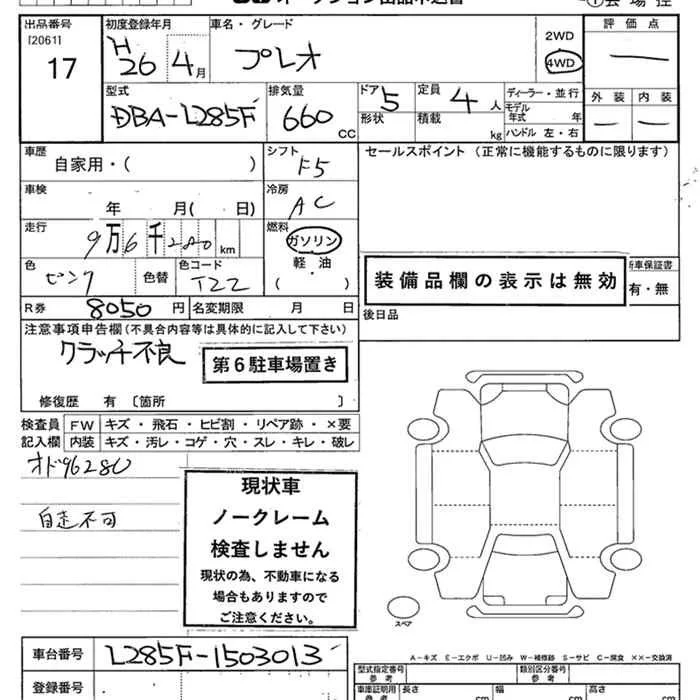 オークション出品申込書
会場控
出品番号 初度登録年月 車名・グレード 2WD 評価点
[2061] 17 H26 4月 プレオ 4WD ―
型式 排気量 ドア 5 定員 4人 ディーラー・並行 外装 内装
DBA-L285F 660 CC 形状 積載 kg モデル年式 年 ― ―
ハンドル 左・右
車歴 シフト セールスポイント (正常に機能するものに限ります)
自家用・( ) F5
車検 冷房
年 月( 日) AC
走行 燃料
9万6千280km ガソリン
色 色替 色コード 軽・油
ピンク T22 ( )
装備品欄の表示は無効
新車保証書
有・無
R券 8050円 名変期限 月 日 後日品
注意事項申告欄(不具合内容等は具体的に記入して下さい)
クラッチ不良
第6駐車場置き
修復歴 有〔箇所 〕
検査員 FW キズ・飛石・ヒビ割・リペア跡・×要
記入欄 内装 キズ・汚レ・コゲ・穴・スレ・キレ・破レ
オド96280
自走不可
現状車
ノークレーム
検査しません
現状の為、不動車になる
場合もありますので
ご注意ください。
スペア
車台番号 L285F-1503013
A-キズ E-エクボ U-凹み W-補修跡 S-サビ C-腐食 ××-交換済
登録番号
型式指定番号 参考 類別区分番号 参考
車庫証明用 参考 長さ cm 幅 cm 高さ cm